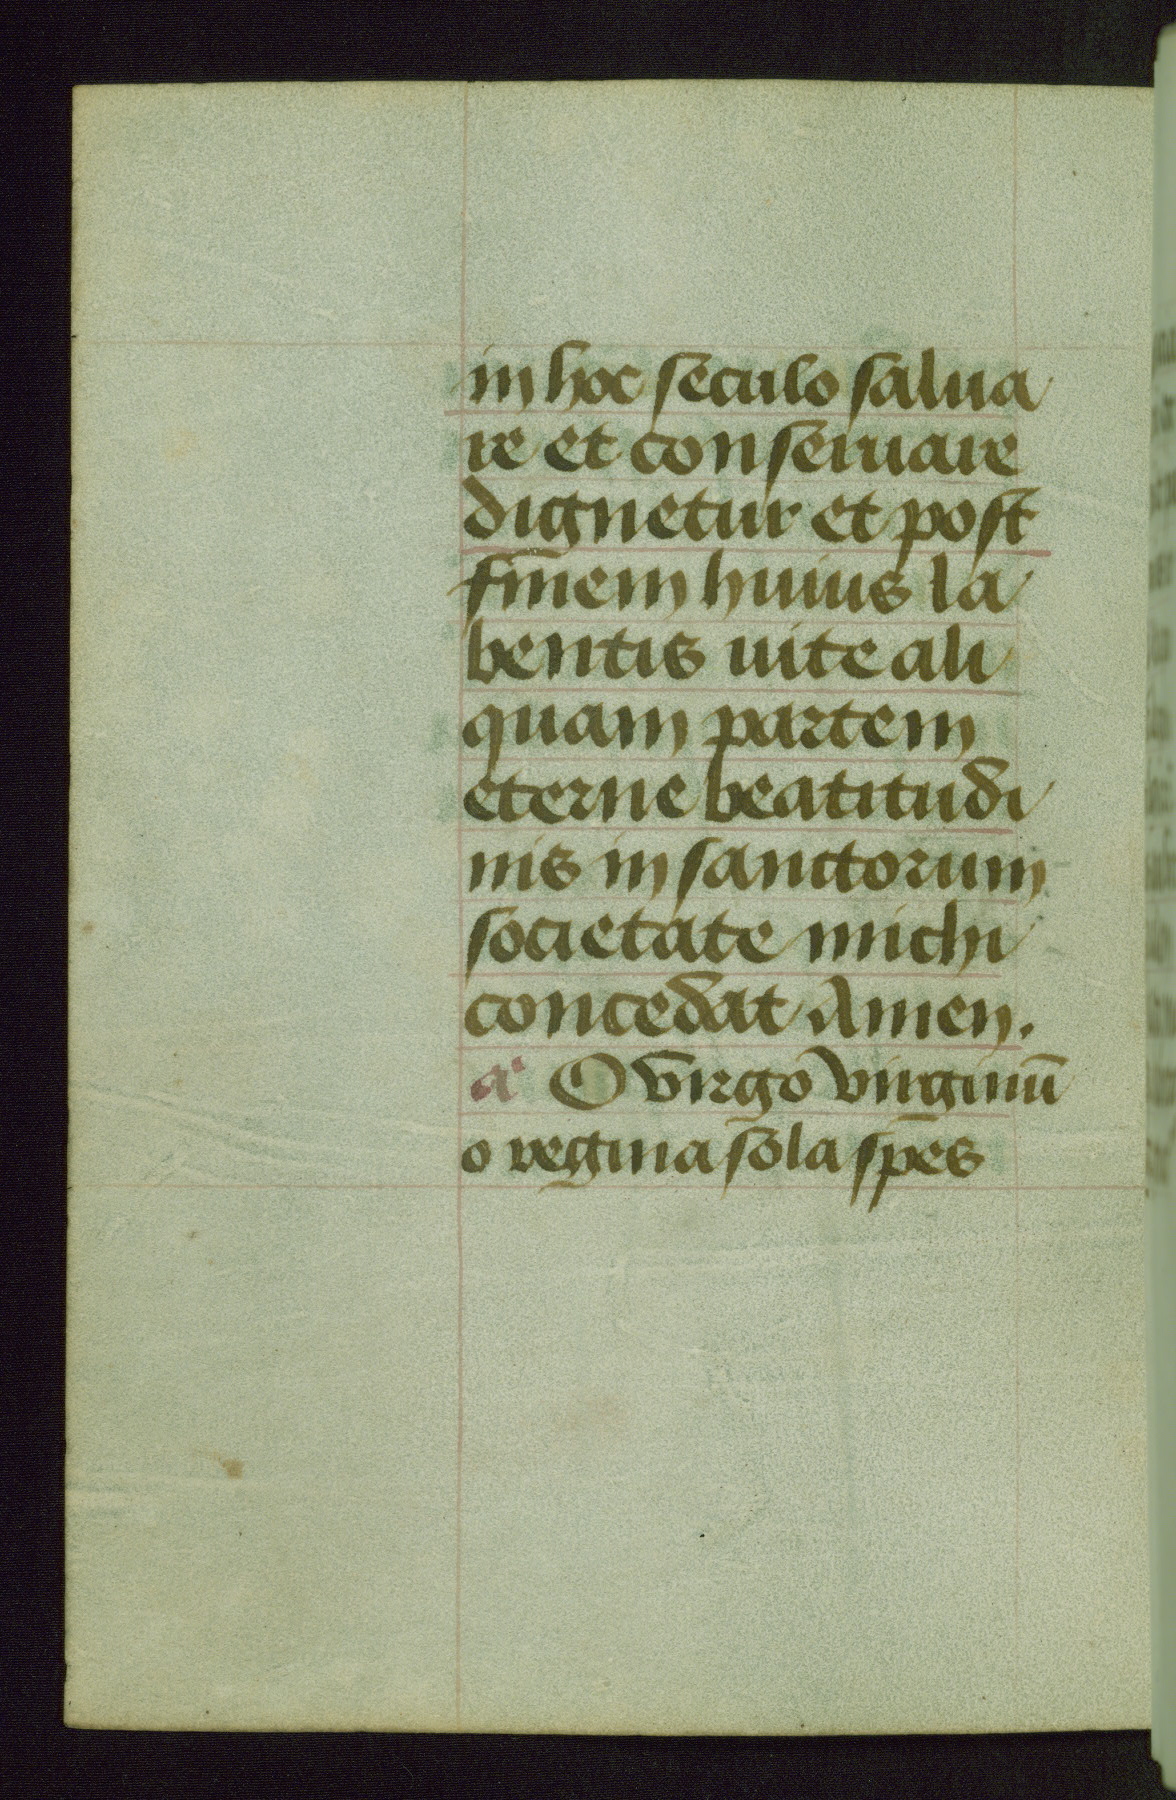 in hoc seculo salua
re et conseruare
dignetur et post
finem huius la
bentis uite ali
quam partem
eterne beatitudi
nis in sanctorum
societate michi
concedat Amen.
aͬ O virgo virginū
o regina sola spes